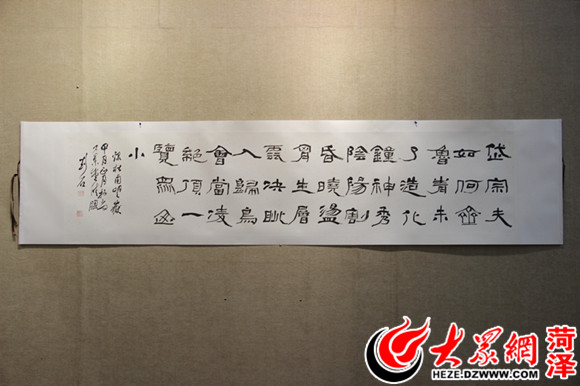 岱宗夫
如何齊
魯青未
了造化
鐘神秀
陰陽割
昏曉盪
胷生層
雲決眦
入歸鳥
會當凌
絕頂一
覽衆山
小
杜甫望嶽
甲午
大众網 菏泽
HEZE.DZWWW.COM